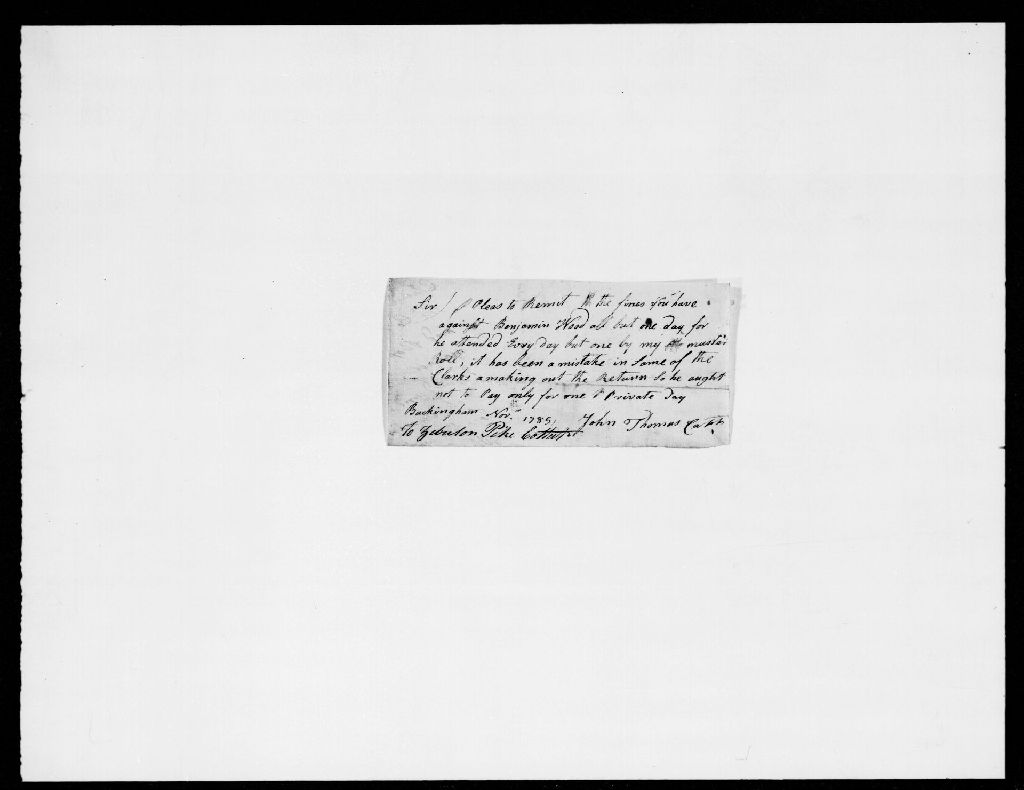 Sir / Pleas to Remit the fines you have
against Benjamin Wood all but one day for
he attended Evry day but one by my muster
Roll, it has been a mistake in Some of the
Clarks a making out the Return So he aught
not to Pay only for one Private Day
Buckingham Novr. 1785, John Thomas Capt
To Zebulon Pike